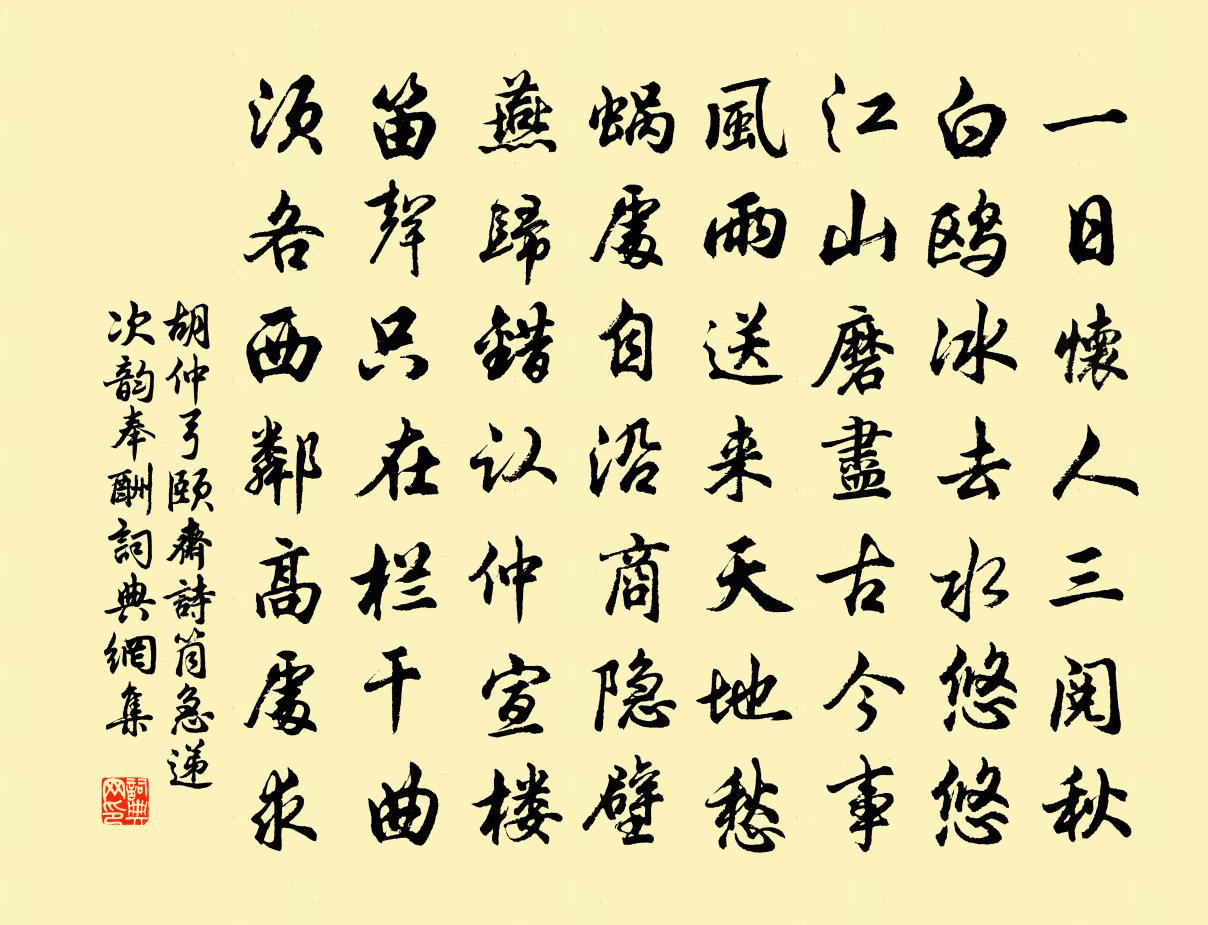 一日懷人三閱秋
白鸥冰去水悠悠
江山磨盡古今事
風雨送来天地愁
蜗處自沿商隐壁
燕歸錯认仲宣楼
笛聲只在栏干曲
須各西鄰高處求
胡仲弓頤齋詩筒急递
次韵奉酬詞典網集
詞典网印